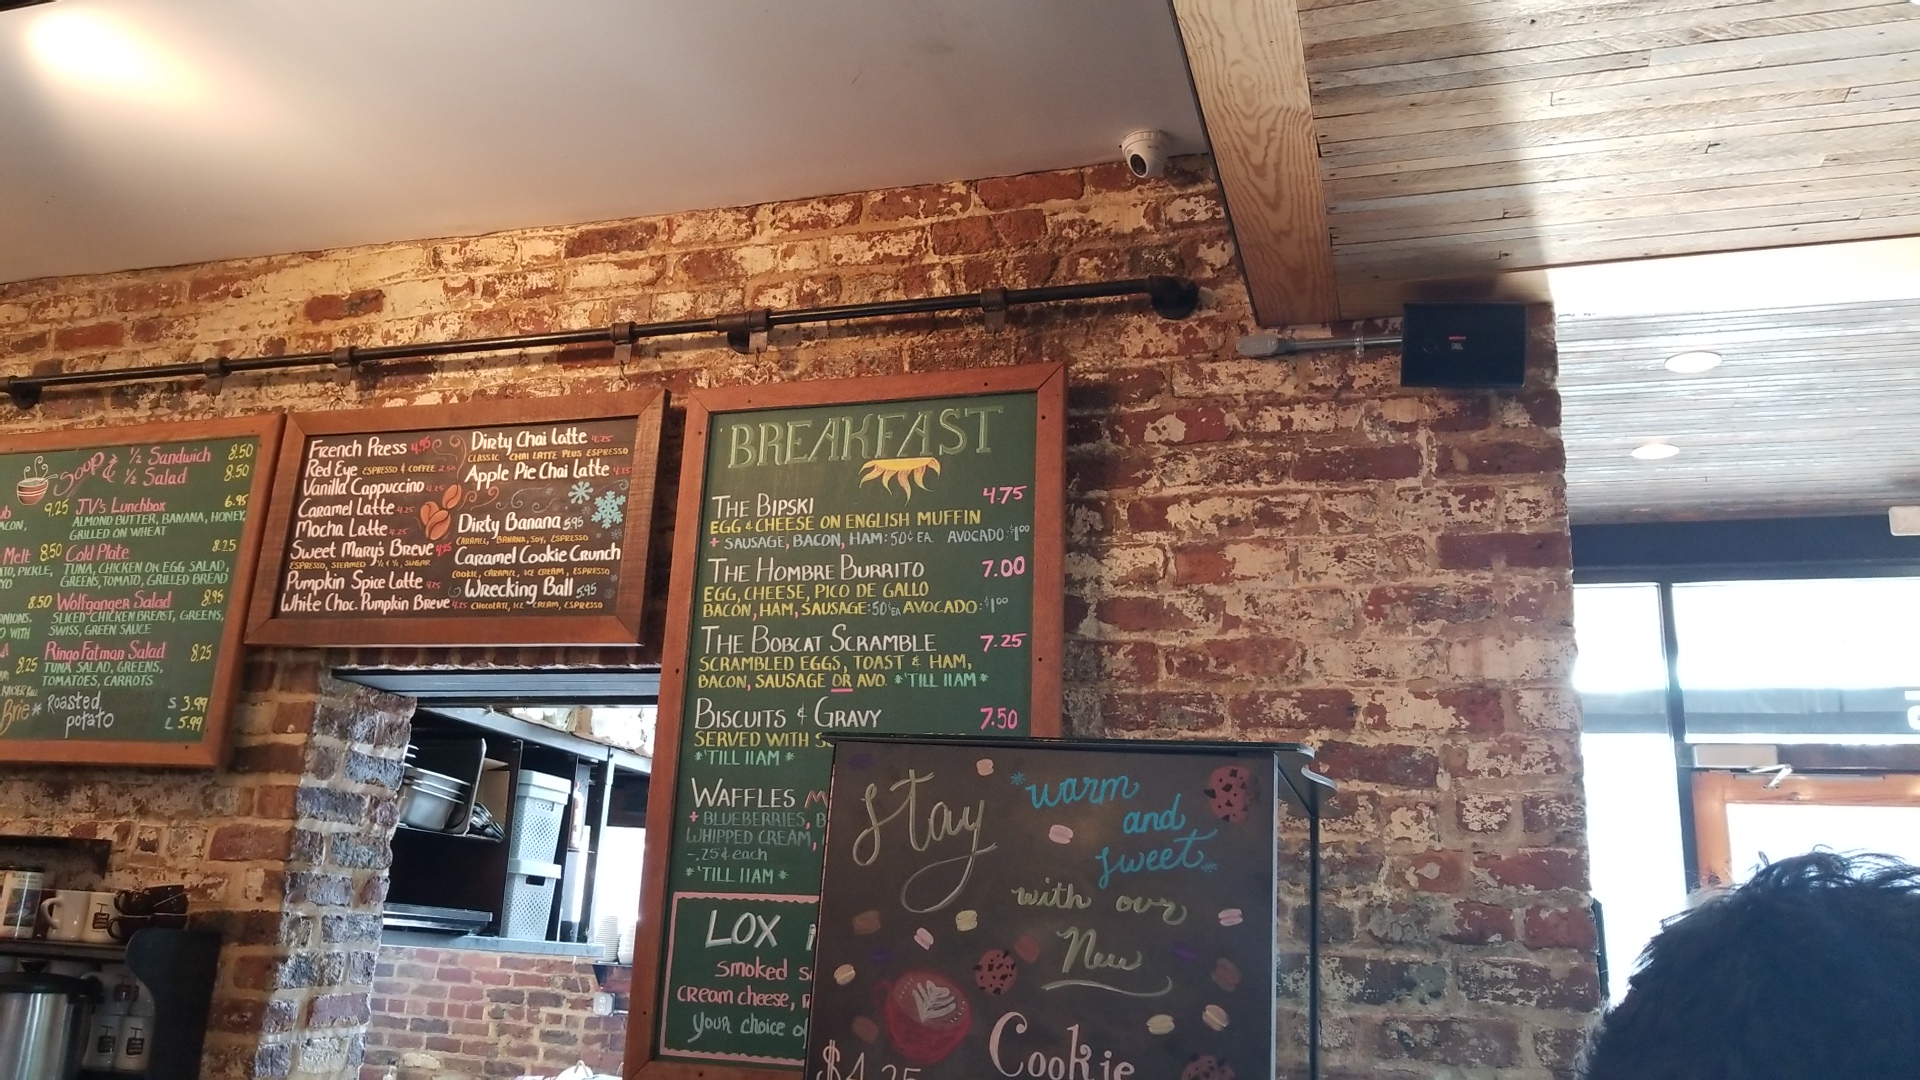 Soup & ½ Sandwich 8.50
½ Salad 8.50
9.25 JV's Lunchbox 6.95
ALMOND BUTTER, BANANA, HONEY,
GRILLED ON WHEAT
Melt 8.50 Cold Plate 8.25
PICKLE, TUNA, CHICKEN OR EGG SALAD,
GREENS, TOMATO, GRILLED BREAD
8.50 Wolfganger Salad 8.95
SLICED CHICKEN BREAST, GREENS,
WITH SWISS, GREEN SAUCE
Ringo Fatman Salad 8.25
8.25 TUNA SALAD, GREENS,
TOMATOES, CARROTS
Brie* Roasted S 3.99
potato L 5.99
French Press 4.95
Red Eye ESPRESSO & COFFEE 2.50
Vanilla Cappuccino 4.25
Caramel Latte 4.25
Mocha Latte 4.25
Sweet Mary's Breve 4.25
ESPRESSO, STEAMED ½ & ½, SUGAR
Pumpkin Spice Latte 4.75
White Choc. Pumpkin Breve 4.75
Dirty Chai Latte 4.25
CLASSIC CHAI LATTE PLUS ESPRESSO
Apple Pie Chai Latte 4.25
Dirty Banana 5.95
CARAMEL, BANANA, SOY, ESPRESSO
Caramel Cookie Crunch
COOKIE, CARAMEL, ICE CREAM, ESPRESSO
Wrecking Ball 5.95
CHOCOLATE, ICE CREAM, ESPRESSO
BREAKFAST
THE BIPSKI 4.75
EGG & CHEESE ON ENGLISH MUFFIN
+ SAUSAGE, BACON, HAM: 50¢ EA. AVOCADO: $1.00
THE HOMBRE BURRITO 7.00
EGG, CHEESE, PICO DE GALLO
BACON, HAM, SAUSAGE: 50¢ EA AVOCADO: $1.00
THE BOBCAT SCRAMBLE 7.25
SCRAMBLED EGGS, TOAST & HAM,
BACON, SAUSAGE OR AVO. *'TILL 11AM*
BISCUITS & GRAVY 7.50
SERVED WITH
*'TILL 11AM*
WAFFLES
+ BLUEBERRIES,
WHIPPED CREAM,
-.25¢ each
*'TILL 11AM*
LOX
smoked
cream cheese,
your choice
Stay *warm
and
sweet*
with our
New
Cookie
$4.25